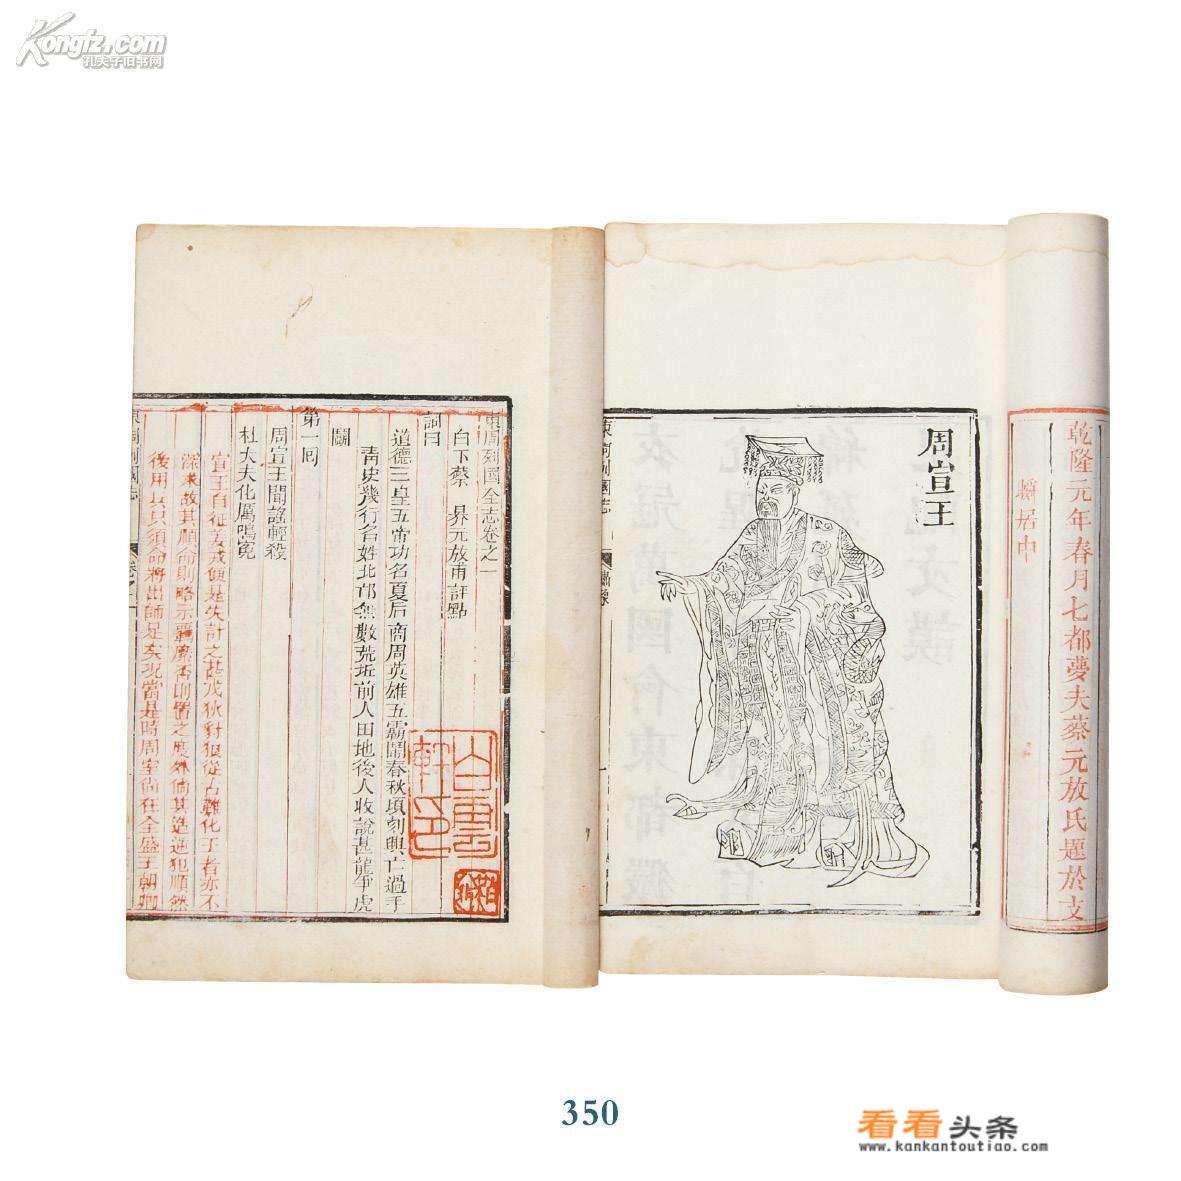 Kongfz.com
孔夫子旧书网
乾隆元年春月七都夢夫蔡元放氏題於支
居中
周宣王
東周列國志
繡像
東周列國全志卷之一
白下蔡 昇元放甫評點
詞曰
道德三皇五帝功名夏后商周英雄五霸鬧春秋頃刻興亡過手
青史幾行名姓北邙無數荒坵前人田地後人收說甚龍爭虎
鬬
第一回
周宣王聞謠輕殺
杜大夫化厲鳴冤
宣王自征姜戎便是失計之甚戎狄豺狼從古難化于者亦不
深求故其順命則略示羈縻否則置之度外倘其造逆犯順然
後用兵只須命將出師足矣況當是時周室尚在全盛王朝卿
東周列國志
350
看看头条
www.kankantoutiao.com